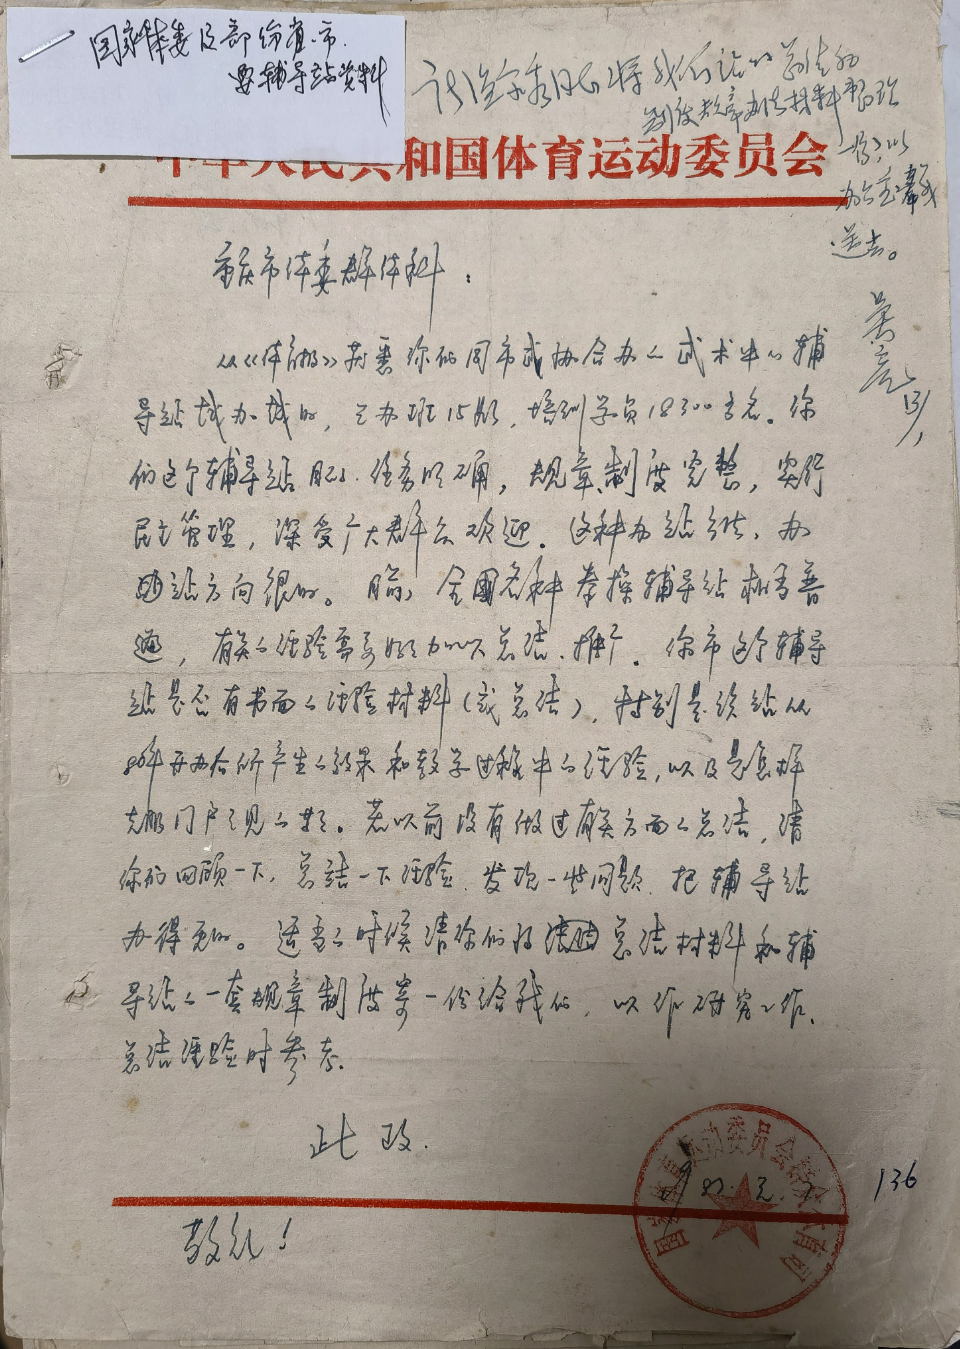 国家体委及部份省、市
要辅导站资料
同志将我们站的总结和
制度规章办法材料整理
一份，以
办公室
送去。
中华人民共和国体育运动委员会
重庆市体委群体科：
从《体育报》获悉你们同市武协合办的武术中心辅
导站越办越好，已办班15期，培训学员18300多名。你
们这个辅导站目的、任务明确，规章、制度完整，实行
民主管理，深受广大群众欢迎。这种办站方法、办
站方向很好。目前，全国各种拳操辅导站相当普
遍，有关的经验需要好好加以总结、推广。你市这个辅导
站是否有书面的经验材料（或总结），特别是该站从
80年开办后所产生的效果和教学过程中的经验，以及是怎样
克服门户之见的等等。若以前没有做过有关方面的总结，请
你们回顾一下，总结一下经验，发现一些问题，把辅导站
办得更好。适当的时候请你们将总结材料和辅
导站的一套规章制度寄一份给我们，以作研究工作、
总结经验时参考。
此致
敬礼！
136